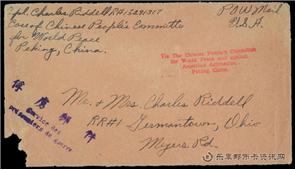 Cpl. Charles Riddell RA. 5281317
Care of Chinese People's Committe
for World Peace
Peking, China.
P.O.W. Mail
U.S.A.
Via The Chinese People's Committee
for World Peace and against
American Aggression,
Peking, China.
俘虏邮件
Service des
prisonniers de guerre
Mr. & Mrs. Charles Riddell
RR#1 Germantown, Ohio
Myers Rd.